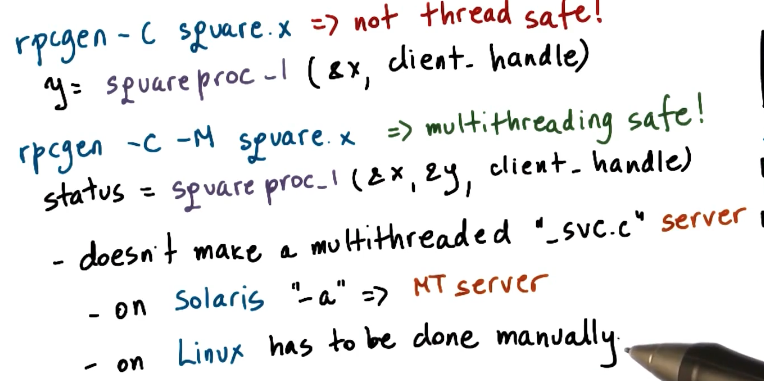 rpcgen -C square.x => not thread safe!
y= squareproc_1 (&x, client_handle)
rpcgen -C -M square.x => multithreading safe!
status = squareproc_1 (&x, &y, client_handle)
- doesn't make a multithreaded "_svc.c" server
- on Solaris "-a" => MT server
- on Linux has to be done manually.